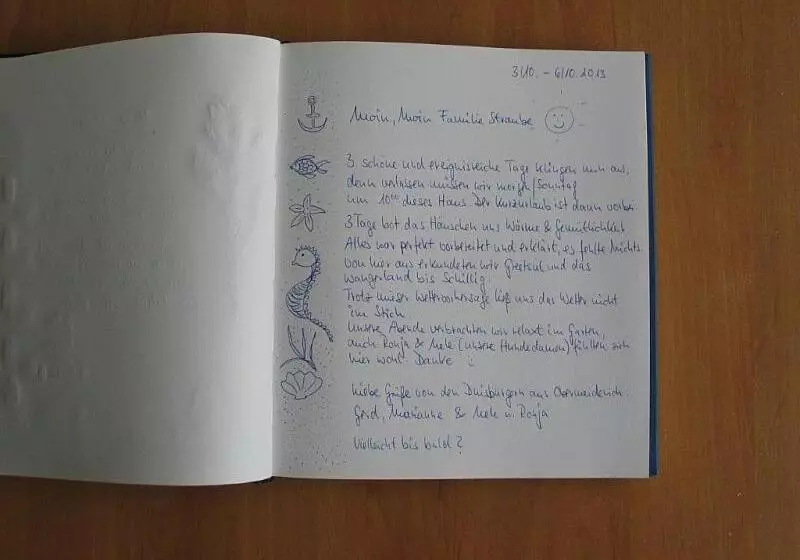 3/10. – 6/10.2013
Moin, Moin Familie Straube
3 schöne und ereignisreiche Tage klingen nun aus,
denn verlassen müssen wir morgen/Sonntag
um 10⁰⁰ dieses Haus. Der Kurzurlaub ist dann vorbei.
3 Tage bot das Häuschen uns Wärme & Gemütlichkeit
Alles war perfekt vorbereitet und erklärt, es fehlte nichts
von hier aus erkundeten wir Greetsiel und das
Wangerland bis Schillig.
Trotz mieser Wettervorhersage ließ uns das Wetter nicht
im Stich.
Unsere Abende verbrachten wir relaxt im Garten,
auch Ronja & Nele (unsere Hundedamen) fühlten sich
hier wohl. Danke :)
Liebe Grüße von den Duisburgern aus Obermeiderich.
Gerd, Marianne & Nele u. Ronja
Vielleicht bis bald?